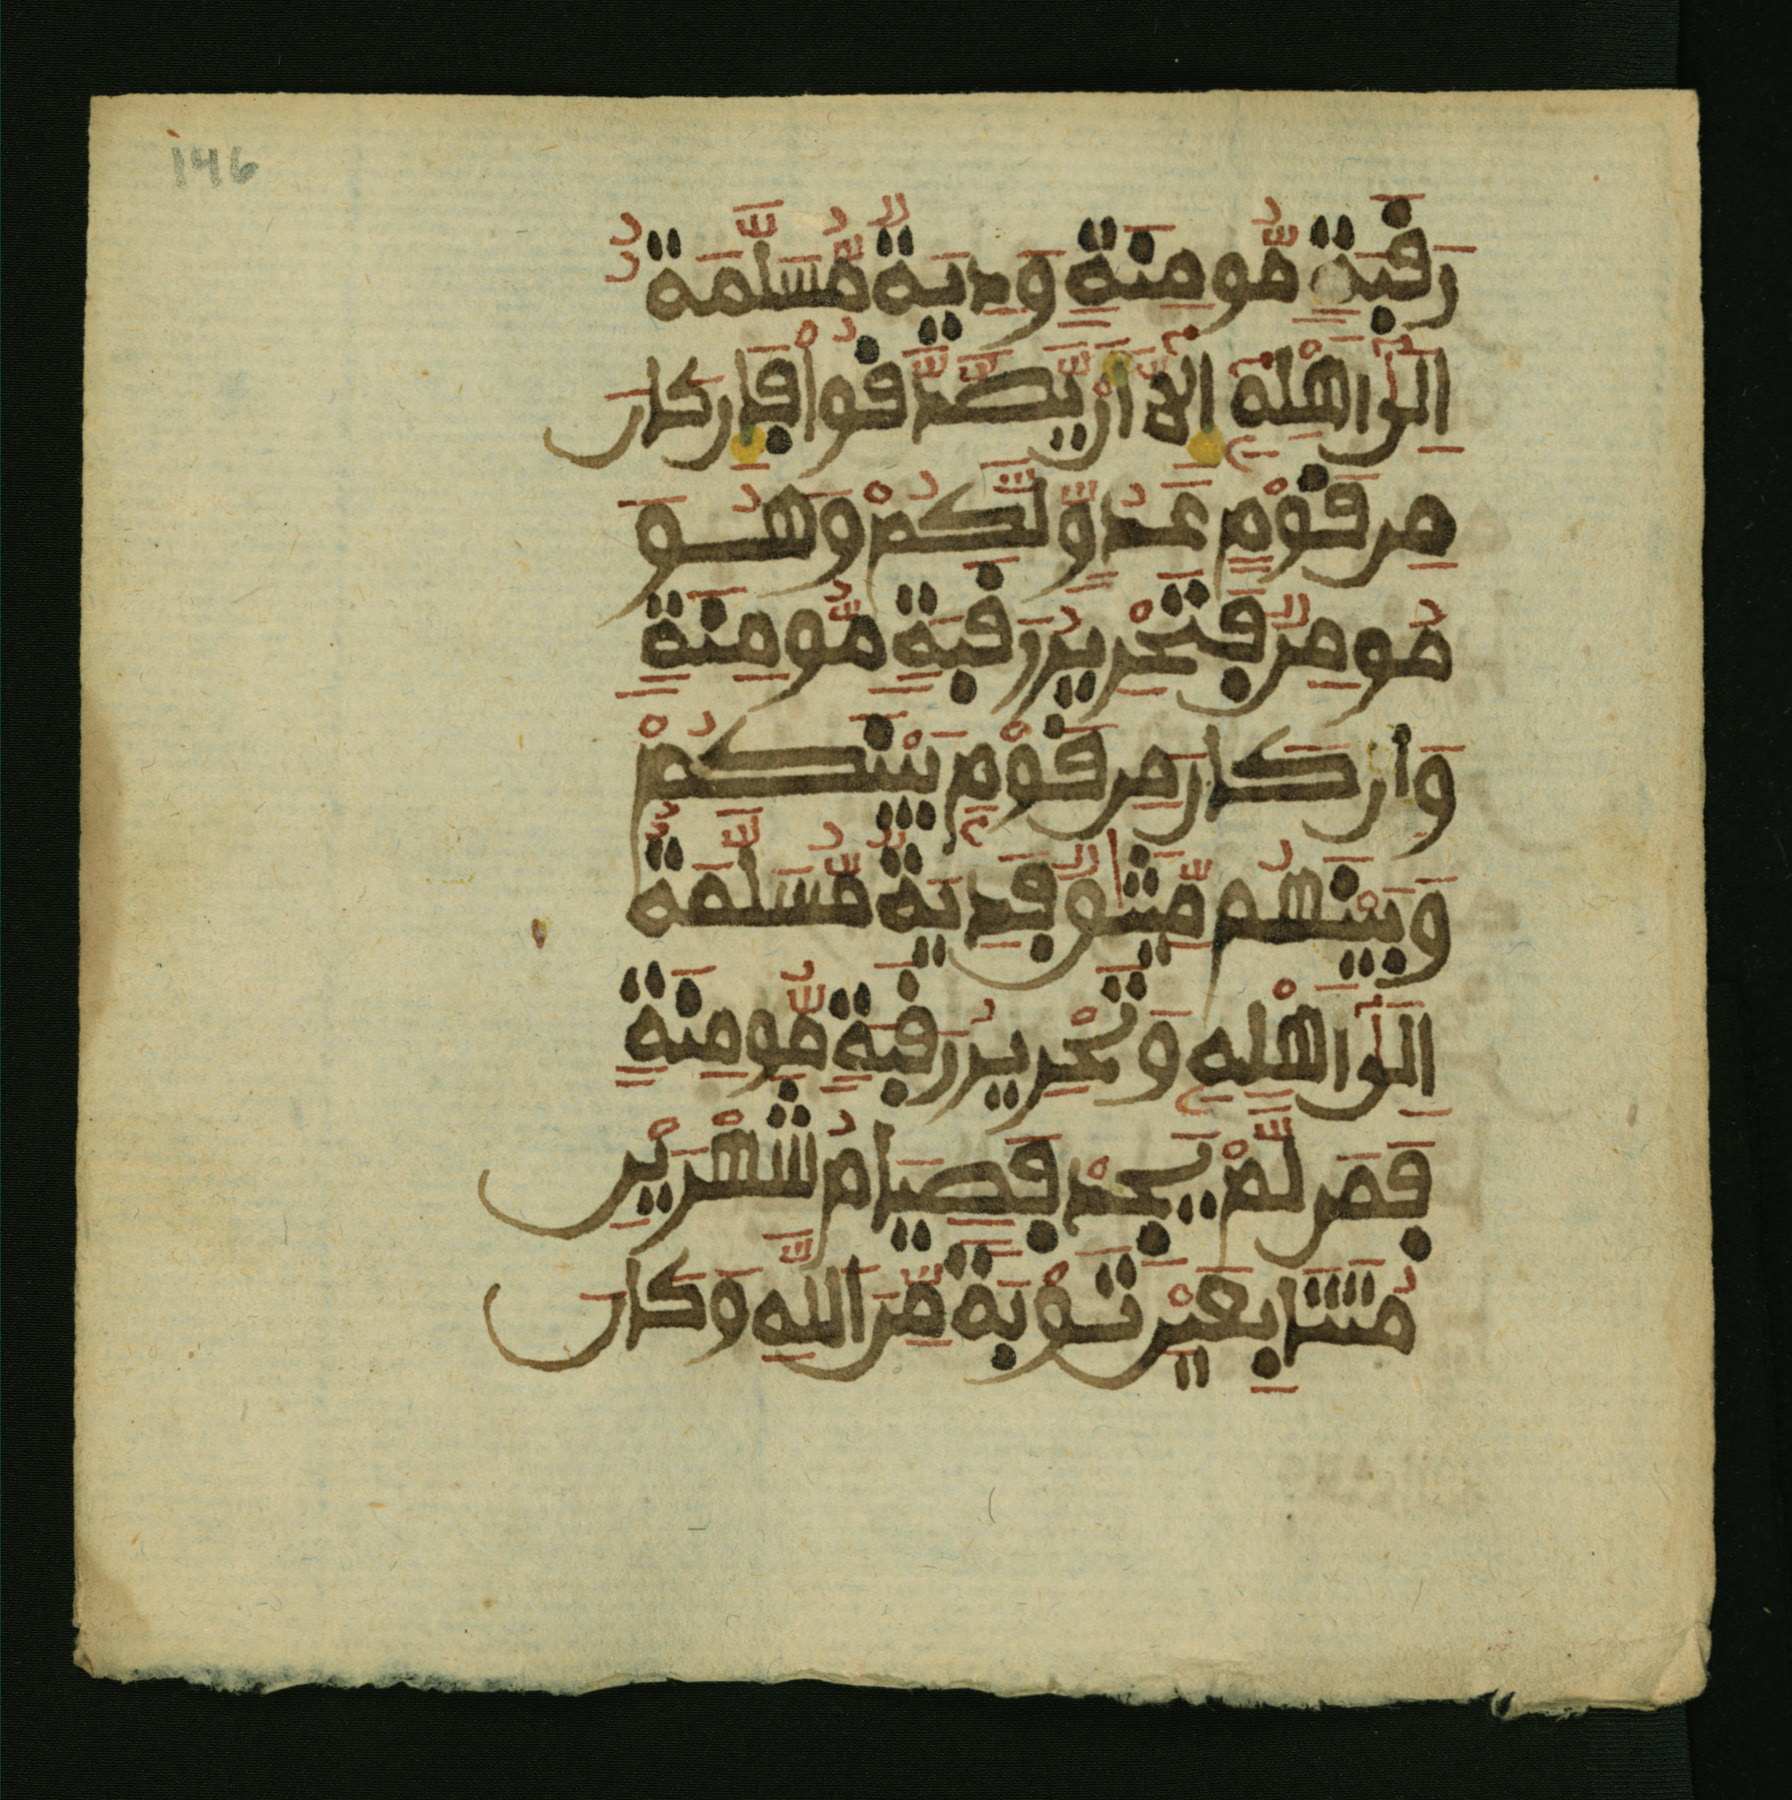 146
رَقَبَةٍ مُّومِنَةٍ وَدِيَةٌ مُّسَلَّمَةٌ
اِلَىٰٓ أَهْلِهِۦٓ إِلَّآ أَنْ يَّصَّدَّقُواْ فَإِن كَانَ
مِن قَوْمٍ عَدُوٍّ لَّكُمْ وَهُوَ
مُومِنٌ فَتَحْرِيرُ رَقَبَةٍ مُّومِنَةٍ
وَإِن كَانَ مِن قَوْمِۭ بَيْنَكُمْ
وَبَيْنَهُم مِّيثَٰقٌ فَدِيَةٌ مُّسَلَّمَةٌ
اِلَىٰٓ أَهْلِهِۦ وَتَحْرِيرُ رَقَبَةٍ مُّومِنَةٍ
فَمَن لَّمْ يَجِدْ فَصِيَامُ شَهْرَيْنِ
مُتَتَابِعَيْنِ تَوْبَةً مِّنَ اللَّهِ وَكَانَ